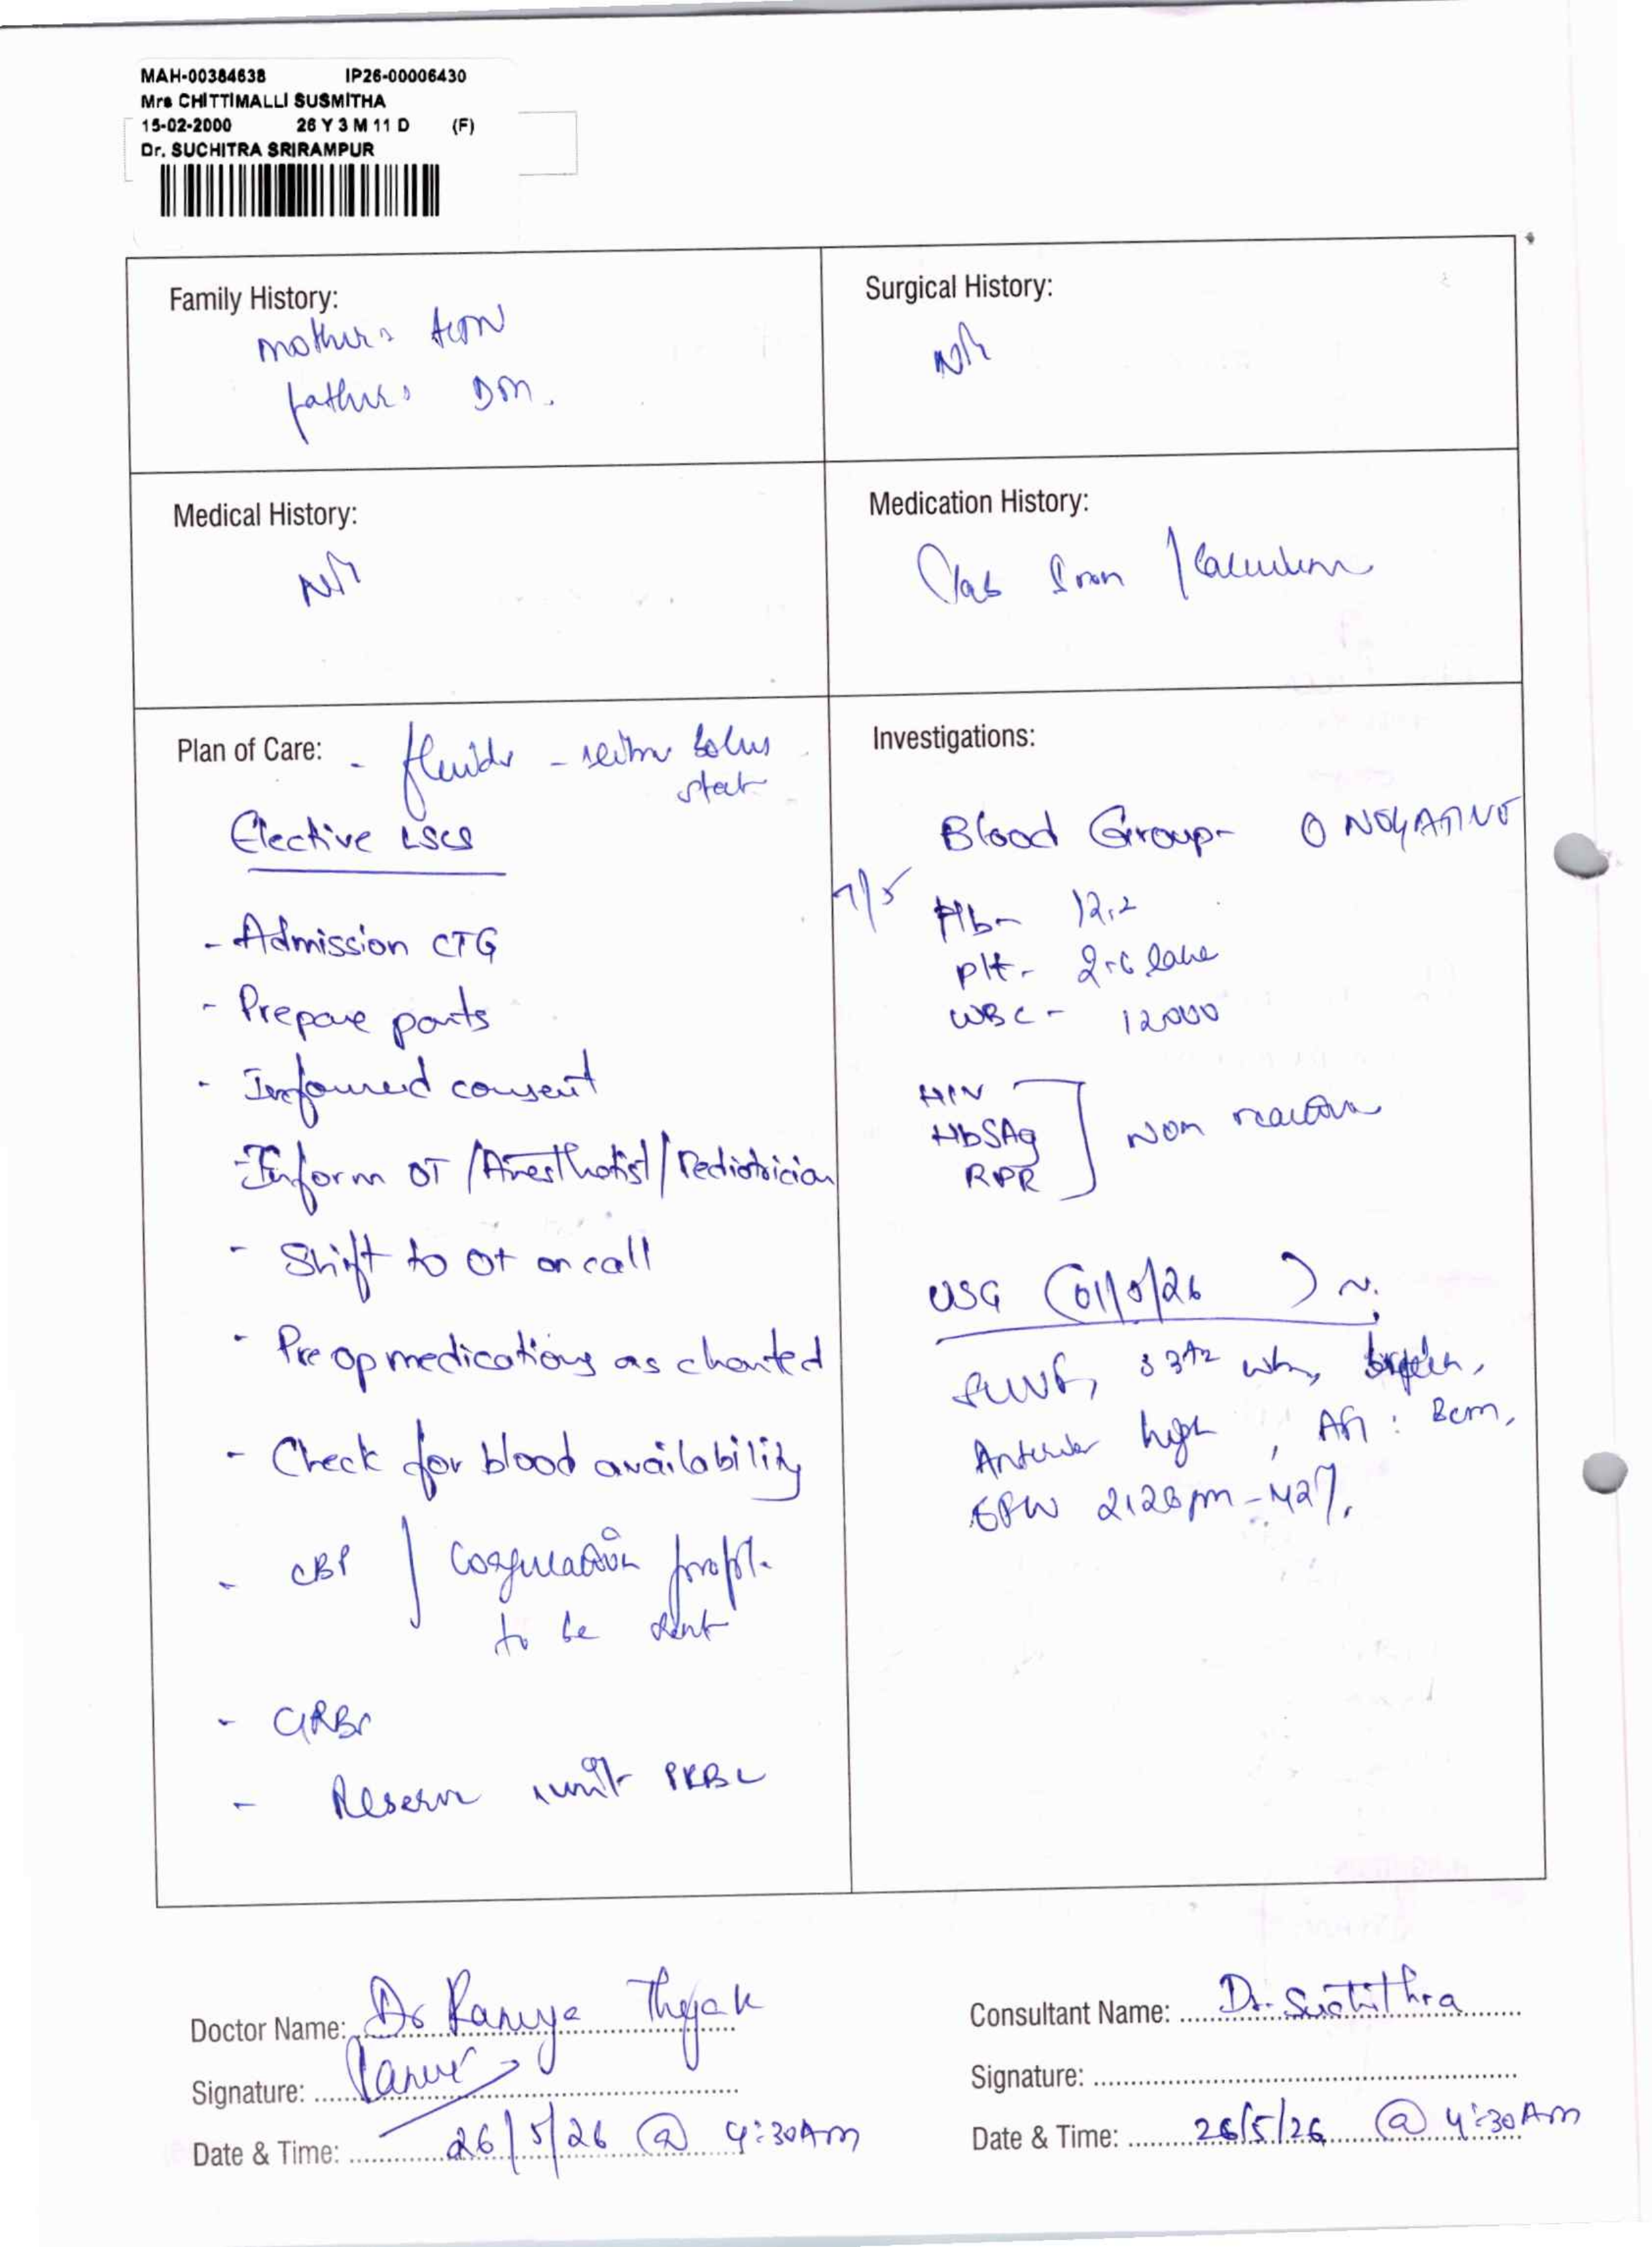 MAH-00384638 IP26-00006430
Mrs CHITTIMALLI SUSMITHA
15-02-2000 26 Y 3 M 11 D (F)
Dr. SUCHITRA SRIRAMPUR
Family History:
mother: HTN
father: DM.
Surgical History:
Nil
Medical History:
Nil
Medication History:
Tab Iron / Calcium
Plan of Care: - fluids - bolus
stat
Elective LSCS
- Admission CTG
- Prepare parts
- Informed consent
- Inform OT / Anesthetist / Pediatrician
- Shift to OT on call
- Pre op medications as charted
- Check for blood availability
- CBP / Coagulation profile
to be sent
- GRBS
- Reserve 1 unit PRBC
Investigations:
Blood Group - O NEGATIVE
7/5 Hb - 12.2
Plt - 2.6 lakh
WBC - 12000
HIV
HbSAg
RPR
Non reactive
USG (01/5/26)
SLIUF, 33+2 wks, breech,
Anterior high, AFI: 8cm,
EFW 2.128 gm - 42%.
Doctor Name: Dr Ramya Thejak
Signature:
Date & Time: 26/5/26 @ 4:30AM
Consultant Name: Dr. Suchithra
Signature:
Date & Time: 26/5/26 @ 4:30AM